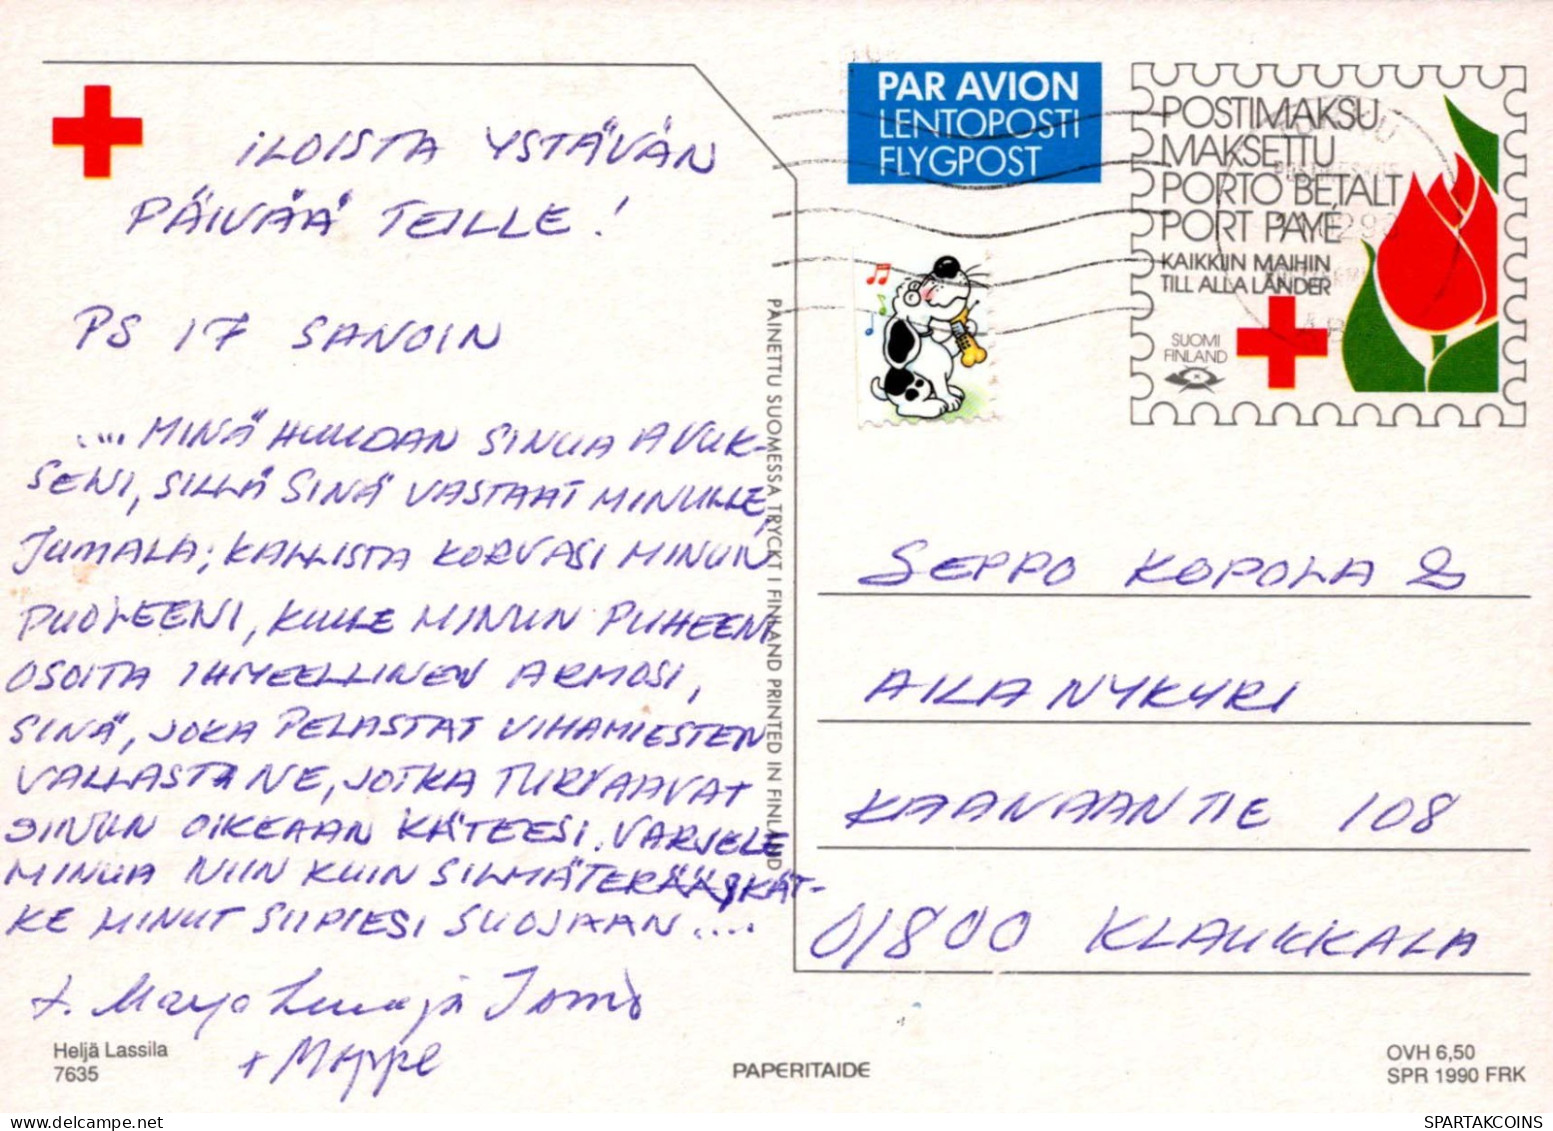 iLOISTA YSTÄVÄN
PÄIVÄÄ TEILLE!
PS 17 SANOIN
.... MINÄ HUUDAN SINUA AVUK-
SENI, SILLÄ SINÄ VASTAAT MINULLE,
JUMALA; KALLISTA KORVASI MINUN
PUOLEENI, KUULE MINUN PUHEENI
OSOITA IHMEELLINEN ARMOSI,
SINÄ, JOKA PELASTAT VIHAMIESTEN
VALLASTA NE, JOTKA TURVAAVAT
SINUN OIKEAAN KÄTEESI. VARJELE
MINUA NIIN KUIN SILMÄTERÄÄ, KÄT-
KE MINUT SIIPIESI SUOJAAN....
T. Marja Leena ja Tomi
+ Moppe
Heljä Lassila
7635
PAINETTU SUOMESSA TRYCKT I FINLAND PRINTED IN FINLAND
PAPERITAIDE
PAR AVION
LENTOPOSTI
FLYGPOST
POSTIMAKSU
MAKSETTU
PORTO BETALT
PORT PAYÉ
KAIKKIIN MAIHIN
TILL ALLA LÄNDER
SUOMI
FINLAND
SEPPO KOPOLA &
AILA NYKYRI
KAANAANTIE 108
01800 KLAUKKALA
OVH 6,50
SPR 1990 FRK
SPARTAKCOINS